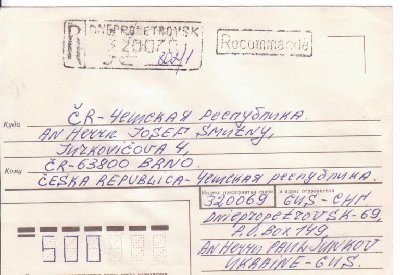 DNEPROPETROVSK
R
Recommandé
Куда
ČR - Чешская республика.
An Herrn JOSEF SMUTNY,
Jurkovičova 4,
Кому
ČR-63800 BRNO.
ČESKA REPUBLICA - Чешская республика.
Индекс предприятия связи и адрес отправителя
320069
GUS - СНГ
Dnepropetrovsk-69,
P.O. Box 149,
An Herrn PAUL JUNKOV
UKRAINE - GUS.
500